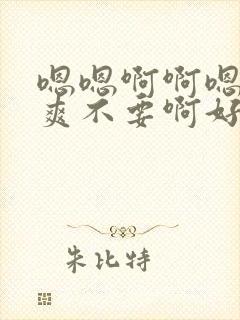 嗯嗯啊啊嗯
爽不要啊好
朱比特